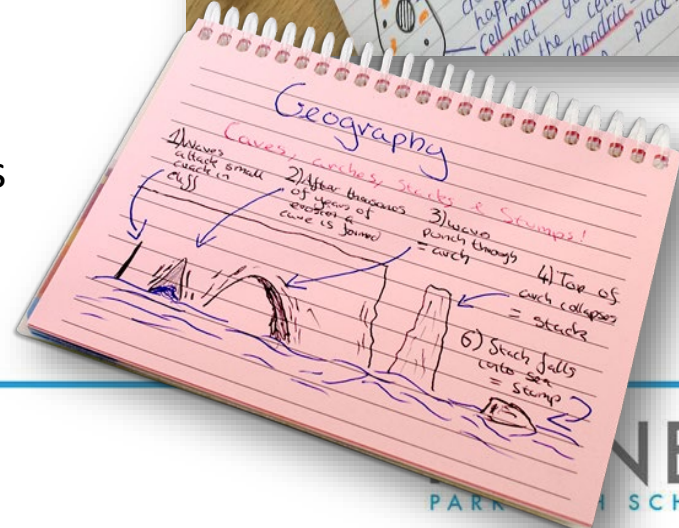 happ
cell mem
what the cell
chondria place
s
Geography
Caves, arches, stacks & Stumps!
1) Waves
attack small
crack in
cliff
2) After thousands
of years of
erosion a
cave is formed
3) wave
punch through
= arch
4) Top of
arch collapses
= stack
6) Stack falls
into sea
= Stump
NE
PARK SCH